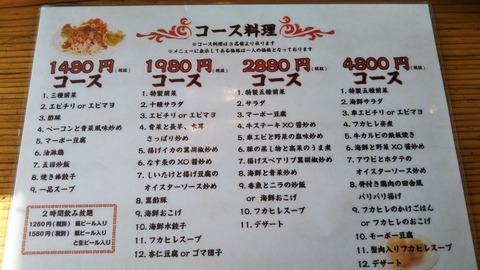 コース料理
※コース料理は3名様より承ります
※メニューに表示してある価格は一人の価格となっております
1480円(税抜)
コース
1. 三種前菜
2. エビチリ or エビマヨ
3. 酢豚
4. ベーコンと青菜風味炒め
5. マーボー豆腐
6. 油淋鶏
7. 五目炒飯
8. 焼き棒餃子
9. 一品スープ
2時間飲み放題
1280円(税別) 瓶ビール入り
1580円(税別) 瓶ビール入り
と生ビール入り
1980円(税抜)
コース
1. 特製前菜
2. 十種サラダ
3. エビチリ or エビマヨ
4. 青菜と長芋、木耳
さっぱり炒め
5. 揚げイカの黒胡椒炒め
6. なす条のXO醤炒め
7. しいたけと揚げ豆腐の
オイスターソース炒め
8. 黒酢豚
9. 海鮮おこげ
10. 海鮮水餃子
11. フカヒレスープ
12. 杏仁豆腐 or ゴマ団子
2880円(税抜)
コース
1. 特製五種前菜
2. サラダ
3. マーボー豆腐
4. 牛ステーキXO醤炒め
5. 車エビと野菜の塩味炒め
6. 豚の蒸し物と高菜のうま煮
7. 揚げスペアリブ黒胡椒炒め
8. 海鮮と青菜炒め
9. 春魚とニラの炒飯
or 海鮮おこげ
10. 海鮮餃子
11. フカヒレスープ
12. デザート
4800円(税抜)
コース
1. 特製五種前菜
2. 海鮮サラダ
3. 車エビチリ or エビマヨ
4. フカヒレ姿煮
5. 牛カルビの鉄板焼き
6. 海鮮と野菜のXO醤炒め
7. アワビとホタテの
オイスターソース炒め
8. 骨付き鶏肉の四金風
パリパリ揚げ
9. フカヒレのかけごはん
or フカヒレおこげ
10. モーボー豆腐
11. 蟹肉入りフカヒレスープ
12. デザート